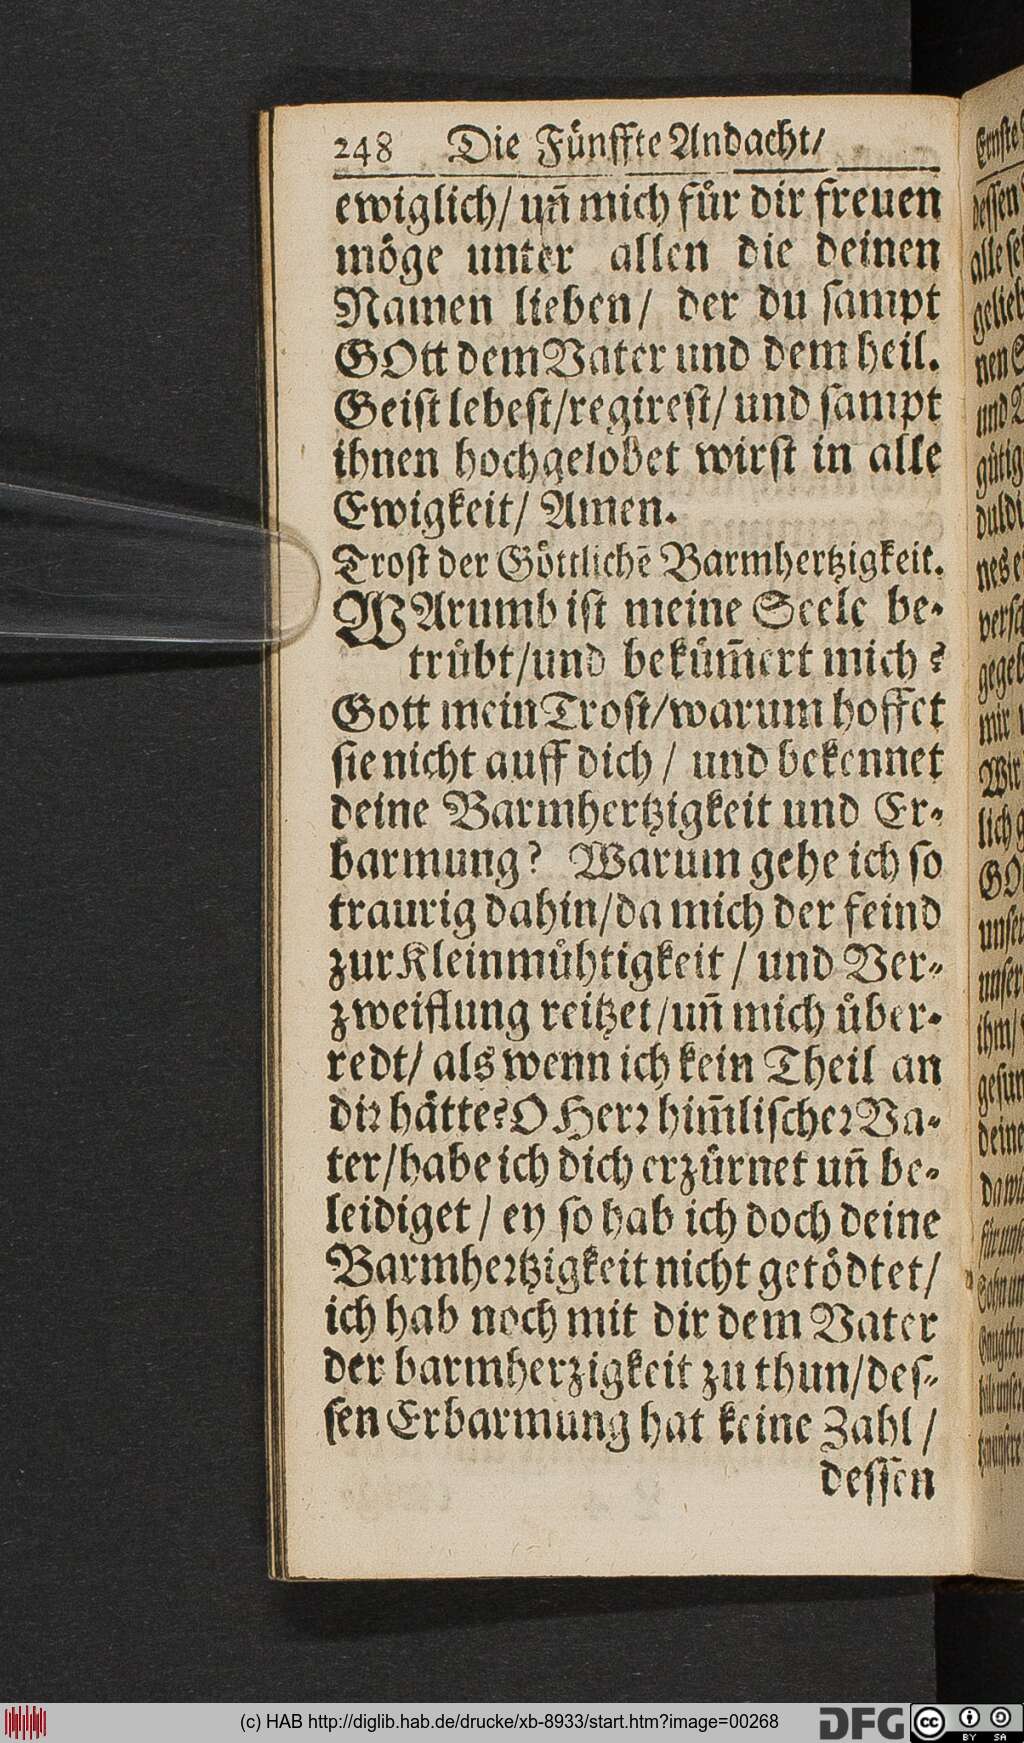 248 Die Fünffte Andacht/
ewiglich/ uñ mich fuͤr dir freuen
moͤge unter allen die deinen
Namen lieben/ der du sampt
GOtt dem Vater und dem heil.
Geist lebest/regirest/ und sampt
ihnen hochgelobet wirst in alle
Ewigkeit/ Amen.
Trost der Goͤttlichē Barmhertzigkeit.
WArumb ist meine Seele be-
truͤbt/und bekuͤm̃ert mich?
Gott mein Trost/warum hoffet
sie nicht auff dich / und bekennet
deine Barmhertzigkeit und Er-
barmung? Warum gehe ich so
traurig dahin/da mich der feind
zur Kleinmuͤhtigkeit / und Ver-
zweiflung reitzet/uñ mich uͤber-
redt/ als wenn ich kein Theil an
dir haͤtte? O Herr him̃lischer Va-
ter/habe ich dich erzuͤrnet uñ be-
leidiget / ey so hab ich doch deine
Barmhertzigkeit nicht getoͤdtet/
ich hab noch mit dir dem Vater
der barmherzigkeit zu thun/des-
sen Erbarmung hat keine Zahl /
dessen
(c) HAB http://diglib.hab.de/drucke/xb-8933/start.htm?image=00268
DFG
cc BY SA